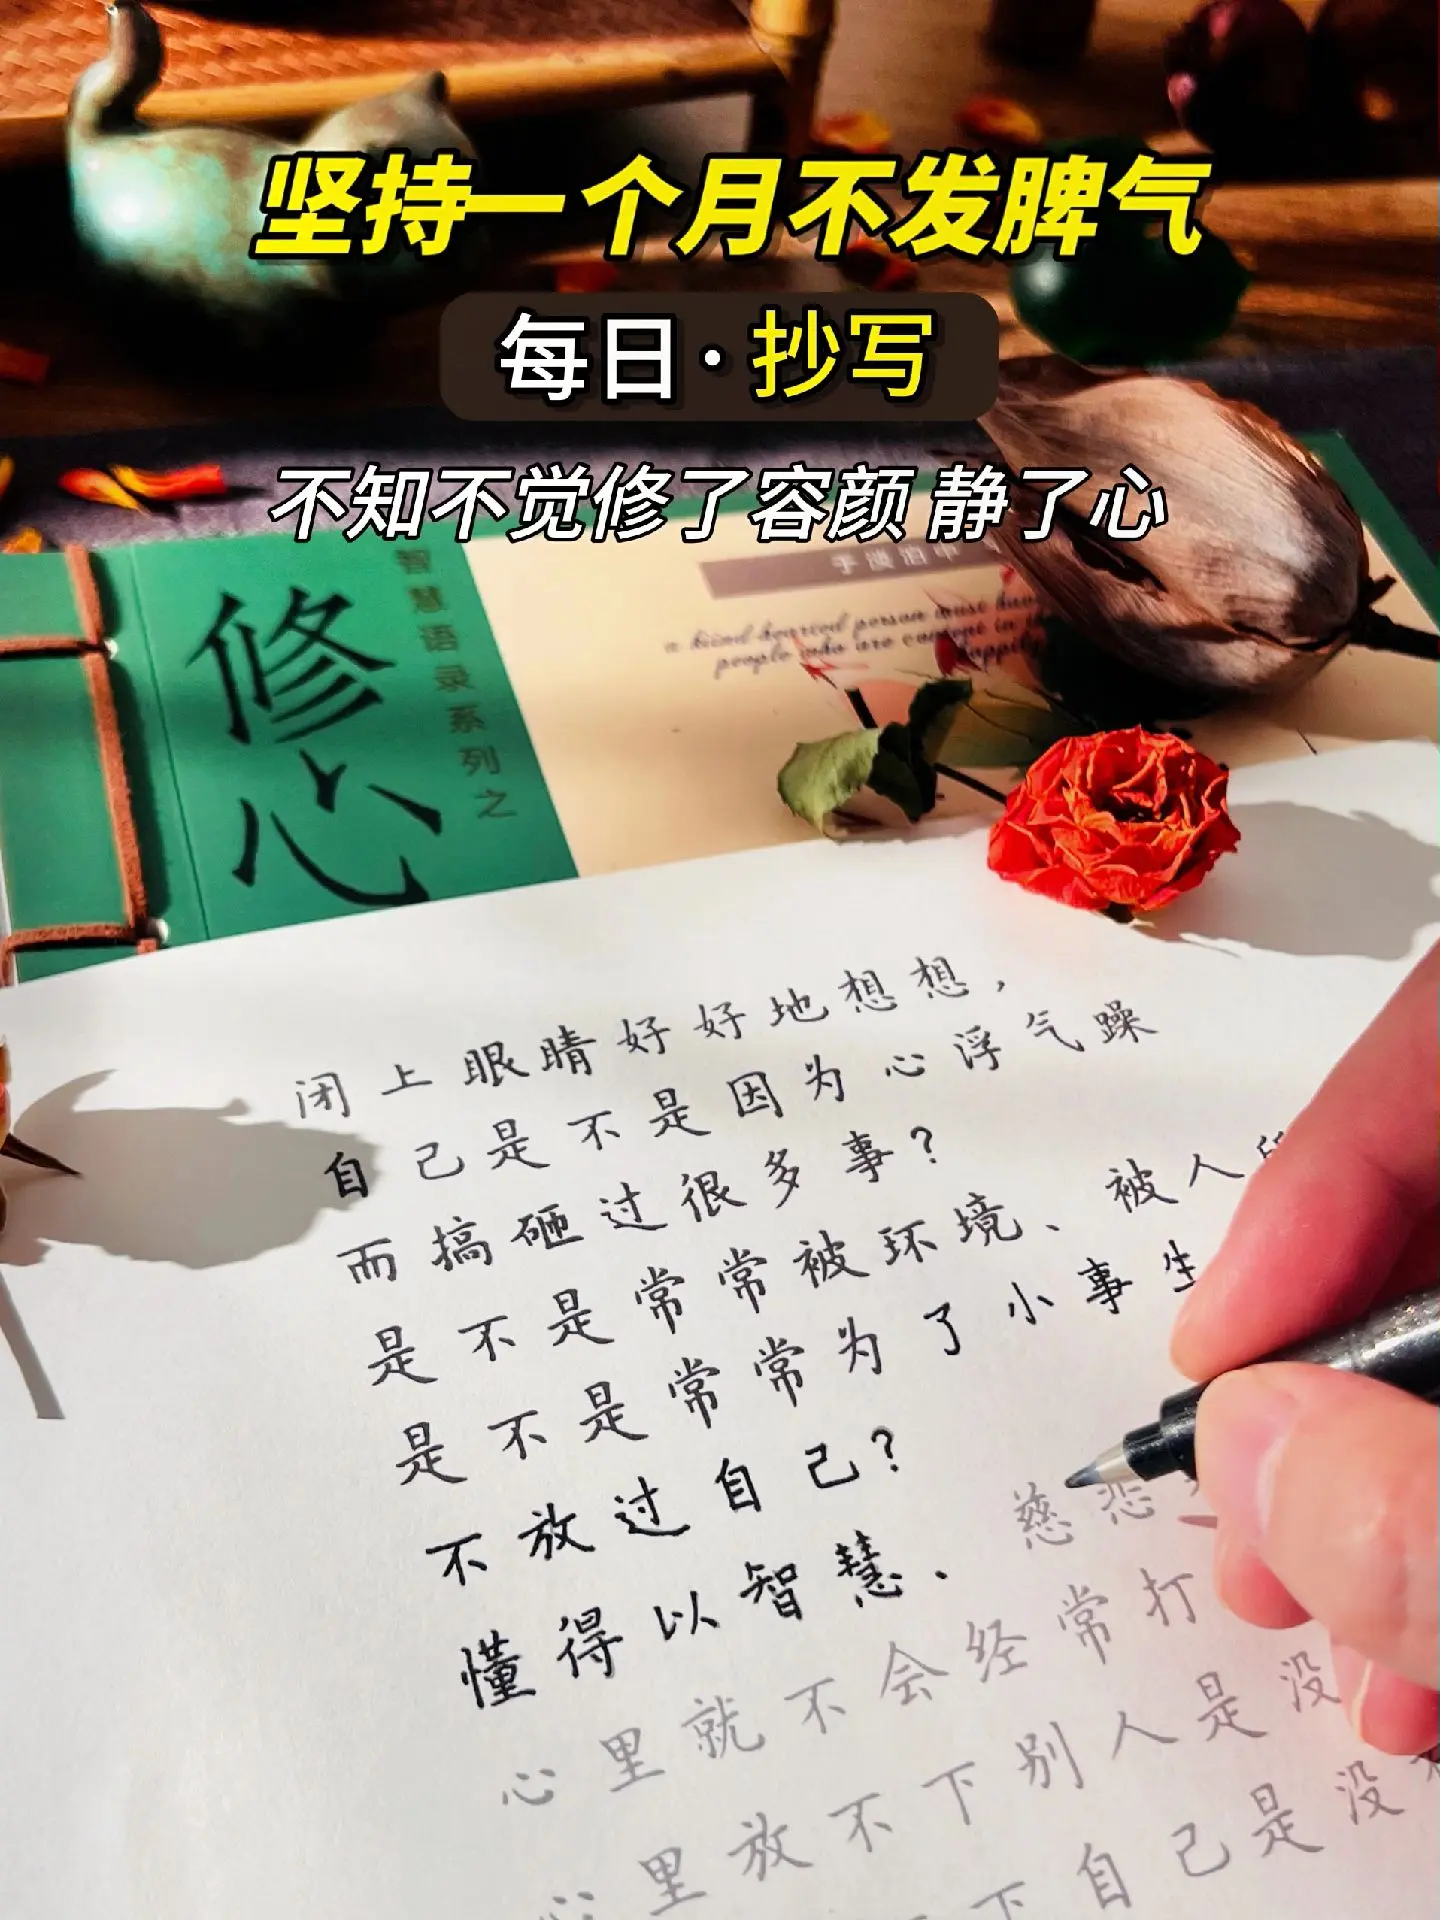 坚持一个月不发脾气
每日·抄写
不知不觉修了容颜 静了心
智慧语录系列之
修心
a kind-hearted person must
people who are content in
happily
闭上眼睛好好地想想，
自己是不是因为心浮气躁
而搞砸过很多事？
是不是常常被环境、被人
是不是常常为了小事生
不放过自己？
懂得以智慧、慈悲
心里就不会经常打
心里放不下别人是没
下自己是没